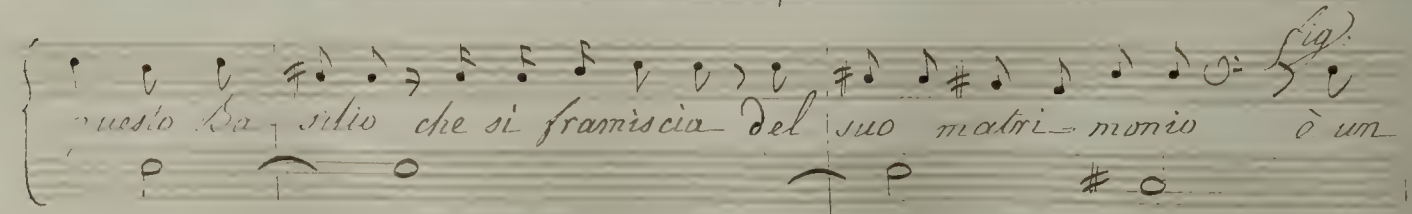 Fig:
questo Ba-silio che si framiscia del suo matri-monio è un